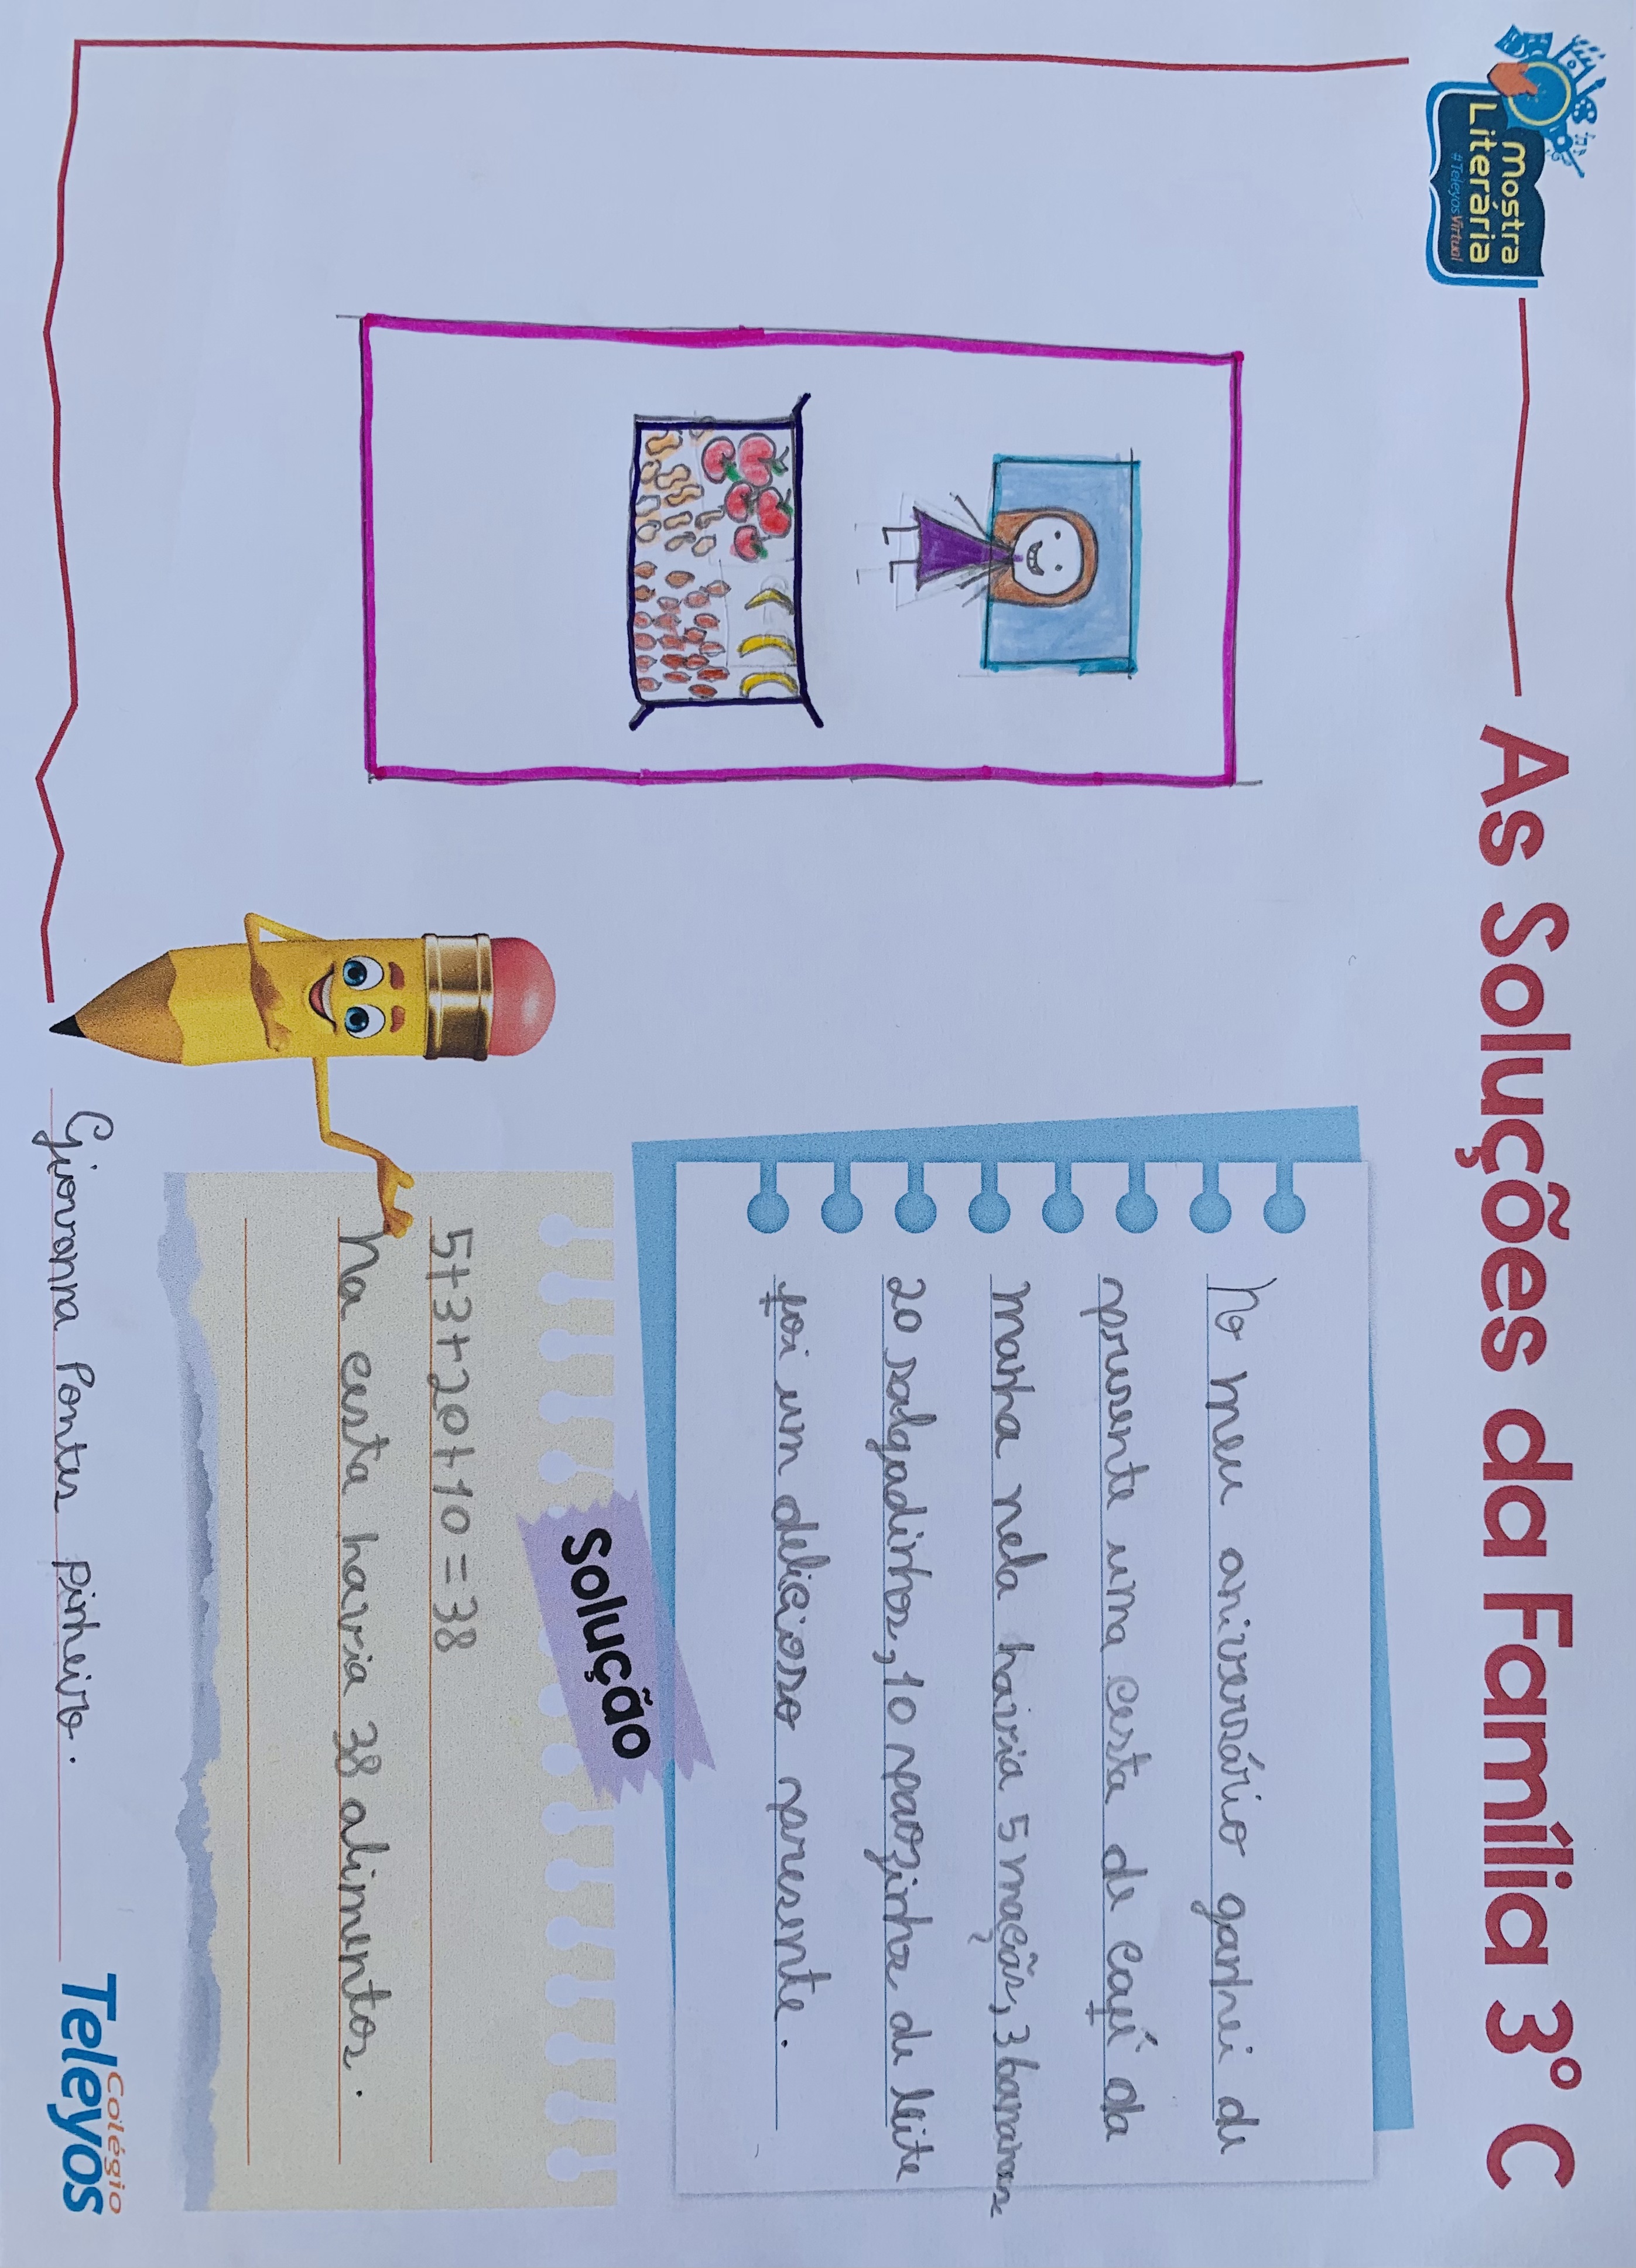 Mostra
Literária
#TeleyosVirtual
As Soluções da Família 3° C
No meu aniversário ganhei de
presente uma cesta de café da
manha nela havia 5 maçãs, 3 bananas
20 salgadinhos, 10 paozinhos de leite
foi um delicioso presente.
Solução
5+3+20+10=38
Na cesta havia 38 alimentos.
Giovanna Pontes Pinheiro.
Colégio
Teleyos